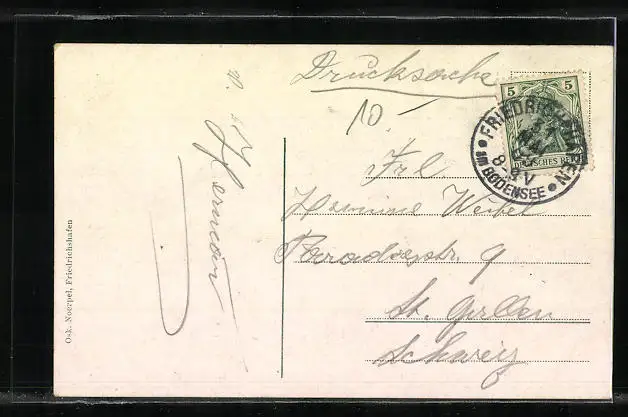 Drucksache
10
5 5
DEUTSCHES REICH
FRIEDRICHSHAFEN
8-9 V
am BODENSEE
Frl
Hermine Weibel
Paradiesstr. 9
St. Gallen
Schweiz
v.
Osk. Noerpel, Friedrichshafen